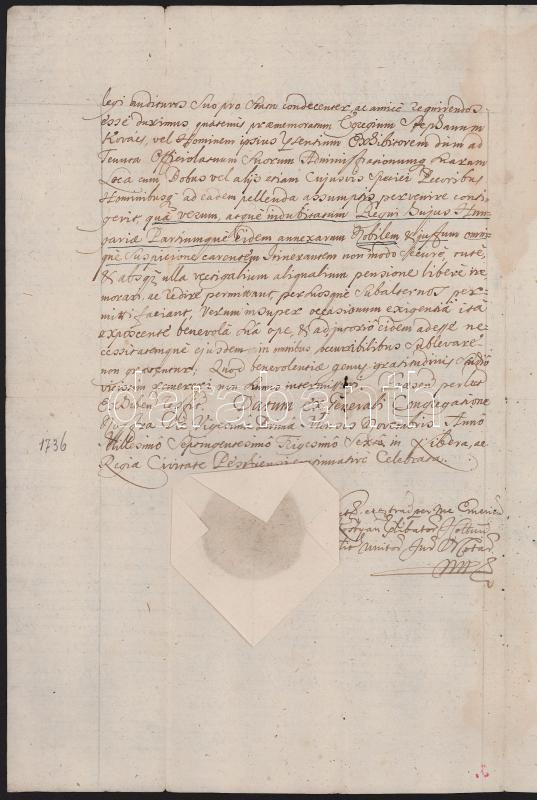 legi audituros suo pro statu condecenter, ac amice requirendos
esse duximus quatenus praememoratum Egregium Stephanum
Kovács, vel Hominem ipsius praesentium Exhibitorem dum ad
Tenuta Officiolatuum Suorum Administrationumque suarum
Loca cum Bobus vel alijs etiam Cujusvis Speciei Pecoribus
Hominibusque ad eadem pellenda assumptis, pervenire conti-
gerit, quâ verum, atque indubitatum Regni Hujus Hun-
gariae Partiumque eidem annexarum Nobilem & justum omni-
que Suspicione carentem Itinerantem non modo Secure, tutè,
& absque ulla vectigalium aliqualium pensione liberè ire
morari, ac redire permittant, perhosque Subalternos per-
mitti faciant, Verum insuper occasionum exigentiâ itâ
exposcente benevolâ suâ ope, & adjutorio eidem adesse ne-
cessitatemque ejusdem in omnibus occurribilibus sublevare
non graventur; Quod benevolentiae genus gratitudinis studio
vicissim remereri non sumus intermissuri
Datum ex Generali Congregatione
Nostra Die Vigesima Prima Mensis Novembris Anno
Millesimo Septingentesimo Trigesimo Sexto in Libera, ac
Regia Civitate Pesthiensi continuative Celebrata.
1736
per me Emericum
Notar
darabanth